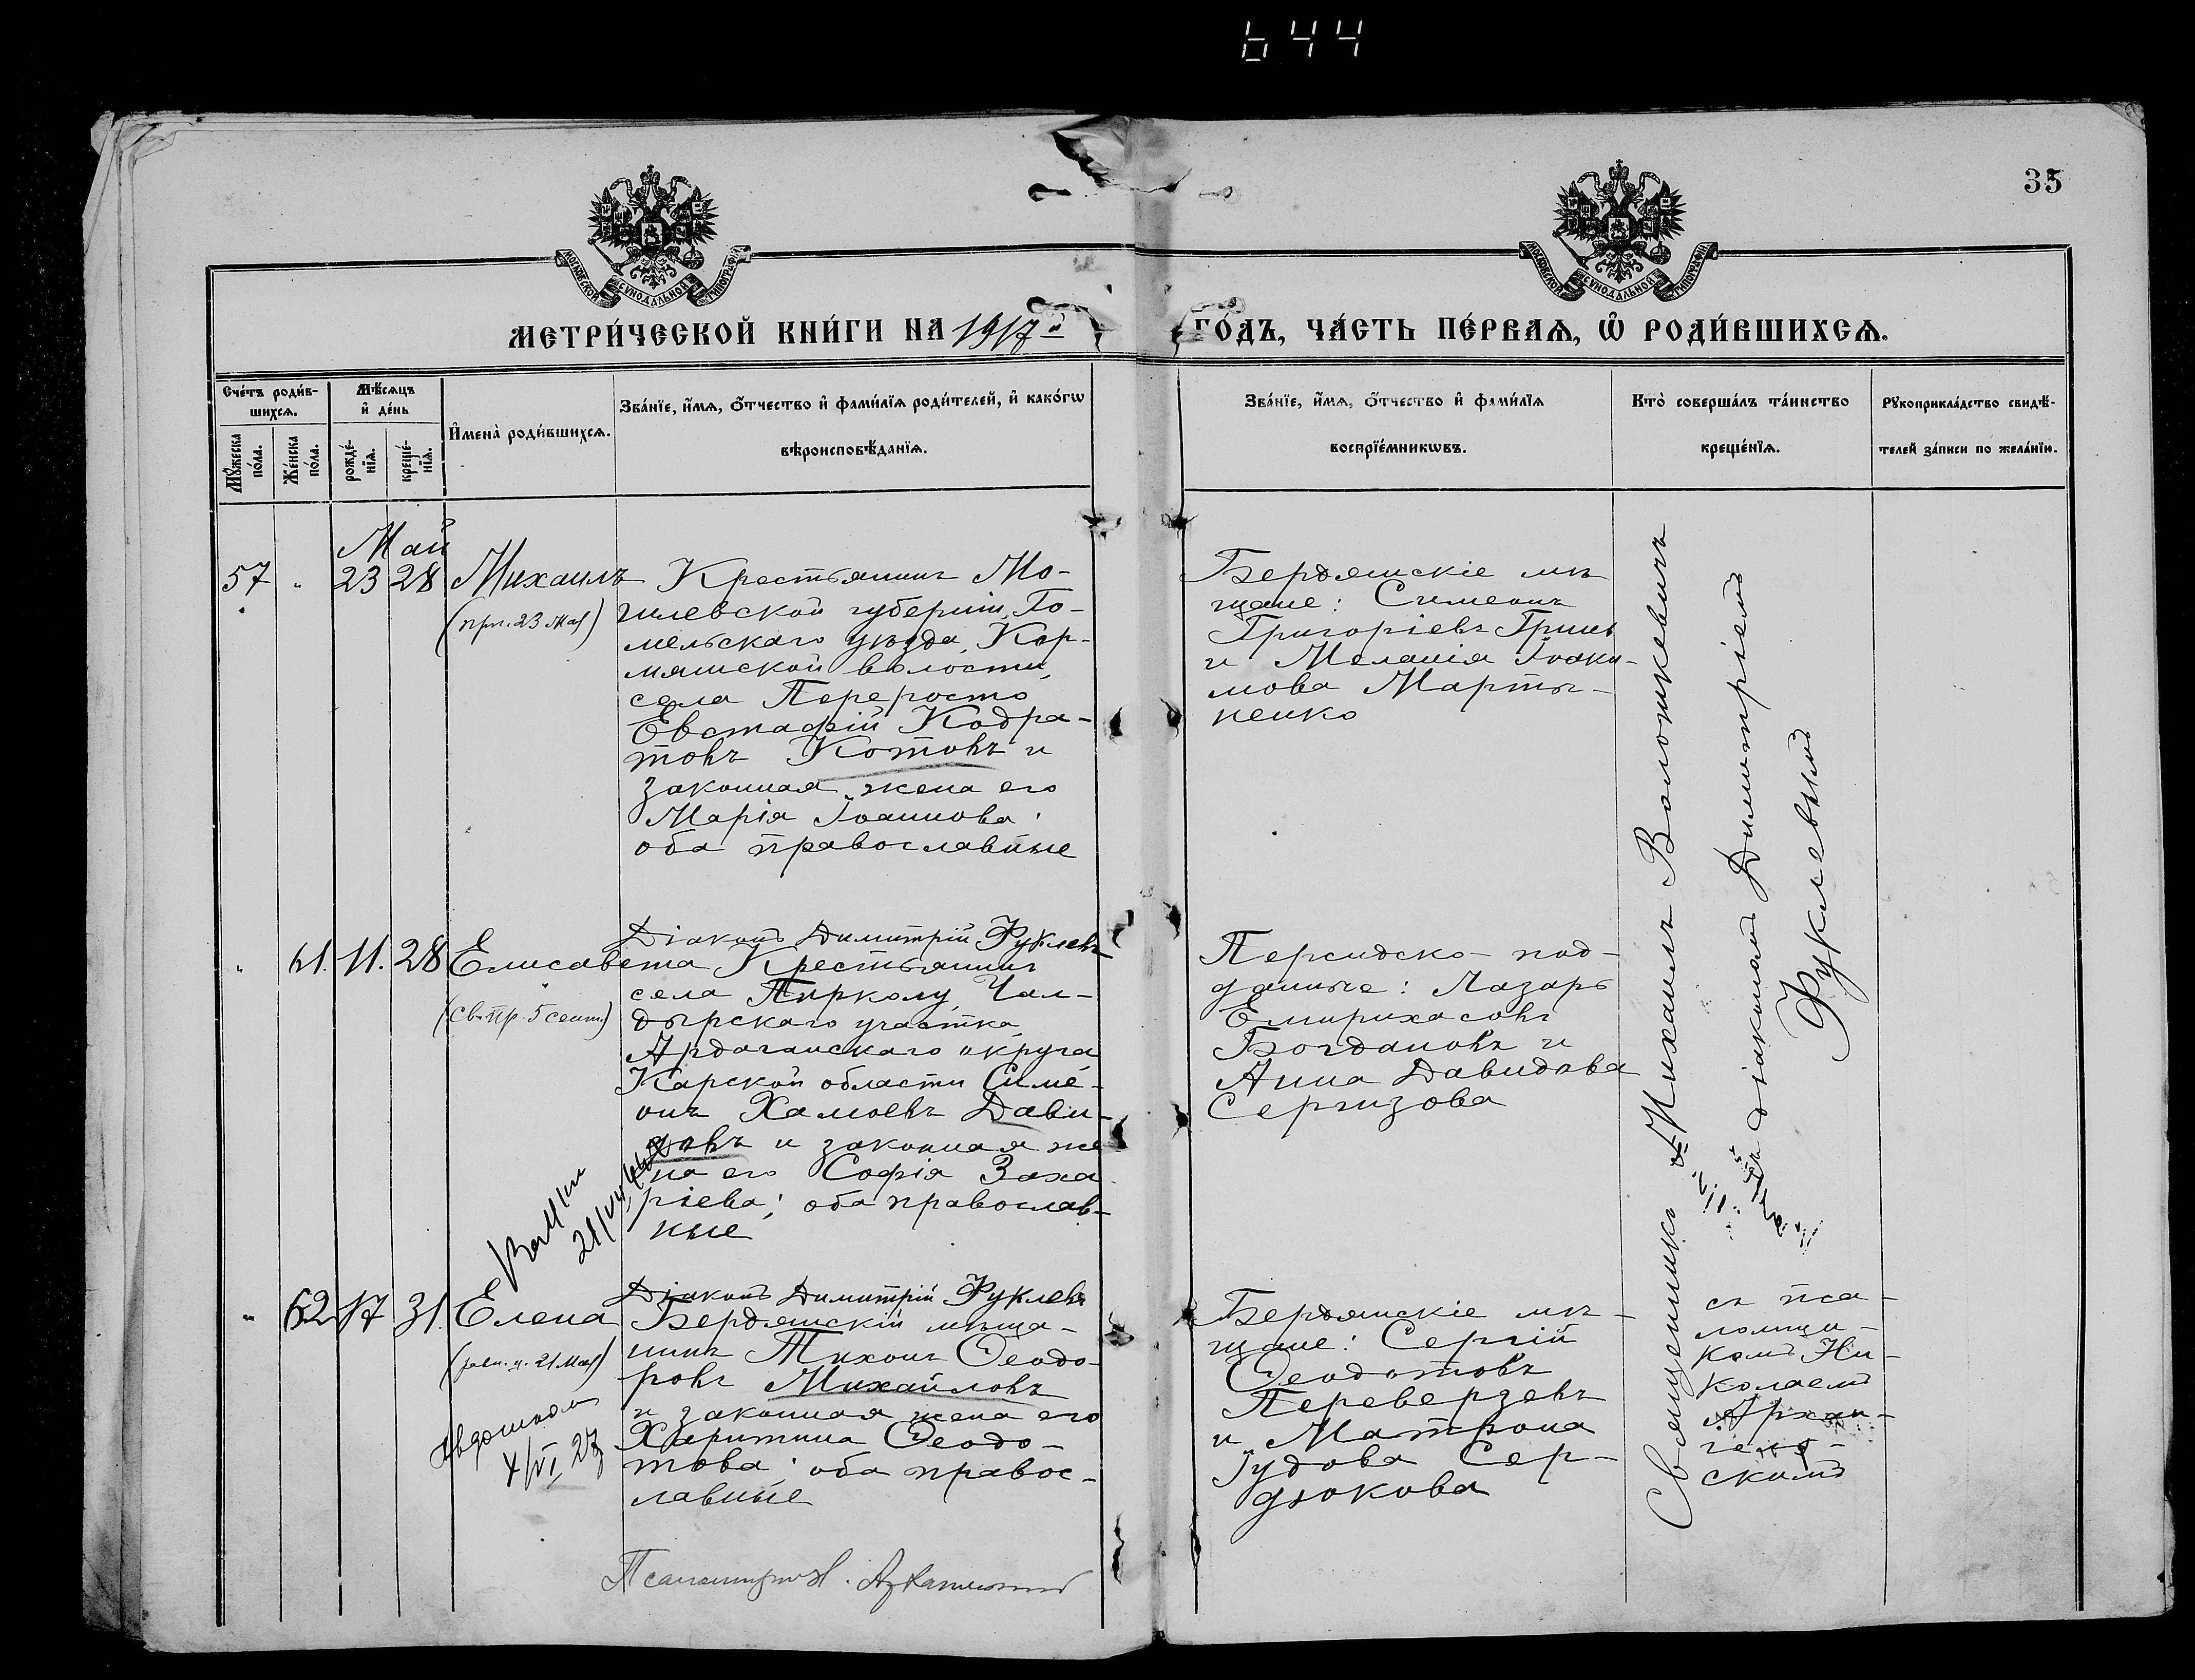 644
35
МОСКОВСКОЙ СУНОДАЛЬНОЙ ТИПОГРАФІИ
МОСКОВСКОЙ СУНОДАЛЬНОЙ ТИПОГРАФІИ
МЕТРИ́ЧЕСКОЙ КНИ́ГИ НА 1917й ГО́ДЪ, ЧА́СТЬ ПЕ́РВАѦ, Ѡ РОДИ́ВШИХСѦ.
Сче́тъ роди́в-
шихсѧ.
Мѣ́сѧцъ
и҆ де́нь
Мꙋжеска
по́ла.
Же́нска
по́ла.
рожде́-
нїѧ.
креще́-
нїѧ.
И҆мена̀ роди́вшихсѧ.
Зва́нїе, и҆́мѧ, ѻ҆́тчество и҆ фами́лїѧ роди́телей, и҆ како́гѡ
вѣроисповѣ́данїѧ.
Зва́нїе, и҆́мѧ, ѻ҆́тчество и҆ фами́лїѧ
воспрїе́мникѡвъ.
Кто̀ соверша́лъ та́инство
креще́нїѧ.
Рꙋкоприкла́дство свидѣ́-
телей за́писи по жела́нїю.
Май
57 " 23 28 Михаилъ
(прп. 23 Мая)
Крестьянинъ Мо-
гилевской губерніи, Го-
мельскаго уѣзда, Кор-
мянской волости,
села Перероста
Евстафій Кодра-
товъ Котовъ и
законная жена его
Марія Іоаннова;
оба православные
Бердянскіе мѣ
щане: Симеонъ
Григоріевъ Гринь
и Меланія Іоаки-
мова Марты-
ненко
Діаконъ Димитрій Фуклевъ
" 61. 11. 28 Елисавета
(св. пр. 5 сент.)
Крестьянинъ
села Пирколу, Чал-
дырскаго участка,
Ардаганскаго округа
Карской области Симе-
онъ Хамоевъ Дави-
довъ и законная же
на его Софія Заха
ріева; оба православ-
ные
Персидско-под-
данные: Лазарь
Емирихасовъ
Богдановъ и
Анна Давидова
Сергизова
Діаконъ Димитрій Фуклевъ
" 62 17 31 Елена
(равн. ц. 21 Мая)
Бердянскій мѣща-
нинъ Тихонъ Ѳеодо-
ровъ Михайловъ
и законная жена его
Харитина Ѳеодо-
това; оба правос-
лавные
Бердянскіе мѣ-
щане: Сергій
Ѳеодотовъ
Переверзевъ
и Матрона
Іудова Сер-
дюкова
Священникъ Михаилъ Волоткевичъ
съ діакономъ Димитріемъ
Фуклевымъ
съ пса-
ломщи-
комъ Ни-
колаемъ
Архан-
гель-
скимъ